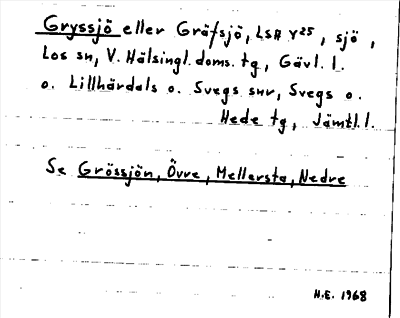 Gryssjö eller Gräfsjö, LSA Y25, sjö,
Los sn, V. Hälsingl. doms. tg, Gävl. l.
o. Lillhärdals o. Svegs snr, Svegs o.
Hede tg, Jämtl. l.
Se Grössjön, Övre, Mellersta, Nedre
H.E. 1968